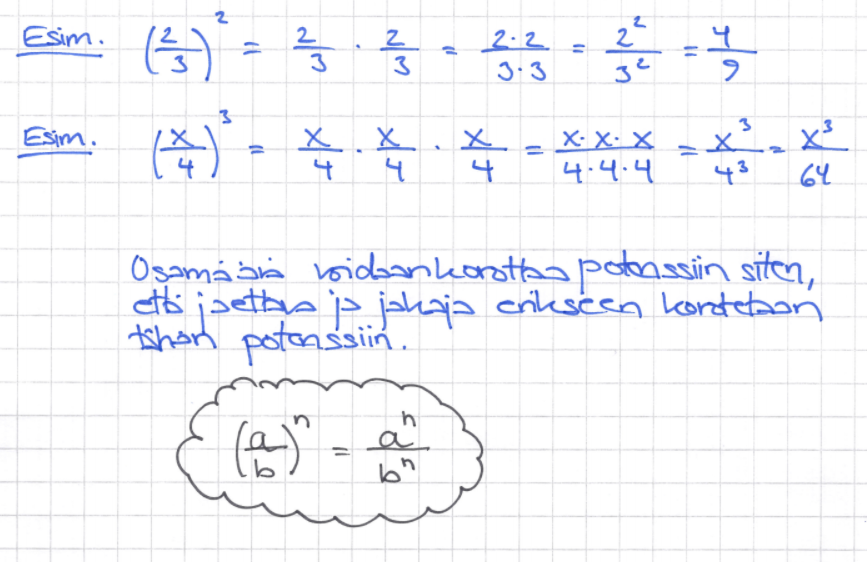 Esim. (2/3)² = 2/3 · 2/3 = 2·2/3·3 = 2²/3² = 4/9
Esim. (x/4)³ = x/4 · x/4 · x/4 = x·x·x/4·4·4 = x³/4³ = x³/64
Osamäärä voidaan korottaa potenssiin siten,
että jaettava ja jakaja erikseen korotetaan
tähän potenssiin.
(a/b)ⁿ = aⁿ/bⁿ